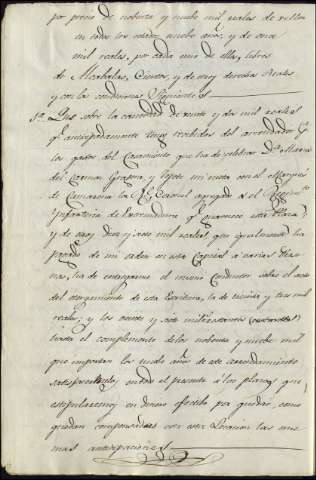 por precio de noventa y nueve mil reales de vellon
en todos los nueve años, y de once
mil reales, por cada uno de ellos, libres
de Alcabalas, Cientos, y de otros derechos Reales
y con las condiciones siguientes
Que sobre la cantidad de y dos mil reales
q.e anticipadamente tengo recibidos del arrendador p.a
los gastos del Casamiento que ha de celebrar D.a Maria
del Carmen mi nieta con el Marques
de Camarena la R.l Coronel agregado a el Regim.to
Ynfanteria de que guarnece esta Plaza
y de otros diez y siete mil reales, que igualmente ha
pagado de mi orden en esta Capital a varias Perso-
nas, ha de entregarme el mismo Conductor sobre el acto
del otorgamiento de esta Escritura, la de treinta y tres mil
reales; y los veinte y siete mil restantes
hasta el complemento de los noventa y nueve mil
que importan los nueve años de este arrendamiento
ha de el presente a los plazos que
estipularemos en dinero efectivo por quedar, como
quedan compensadas con esta Locacion las mis-
mas anticipaciones